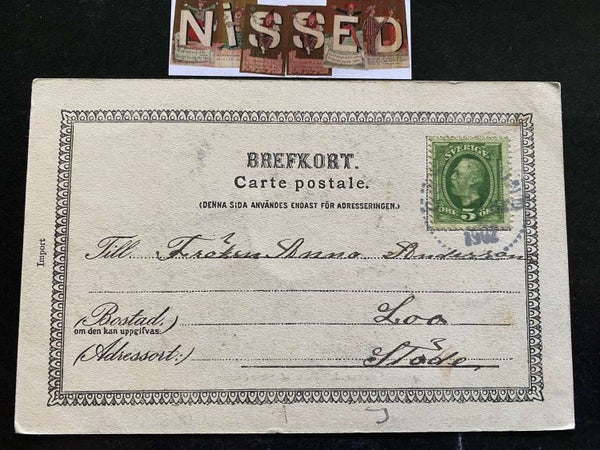 NISSED
BREFKORT.
Carte postale.
(DENNA SIDA ANVÄNDES ENDAST FÖR ADRESSERINGEN.)
SVERIGE
ÖRE 5 ÖRE
1902
Import
Till Fröken Anna Andersson
(Bostad:) Loo
om den kan uppgifvas:
(Adressort:) Stöde.